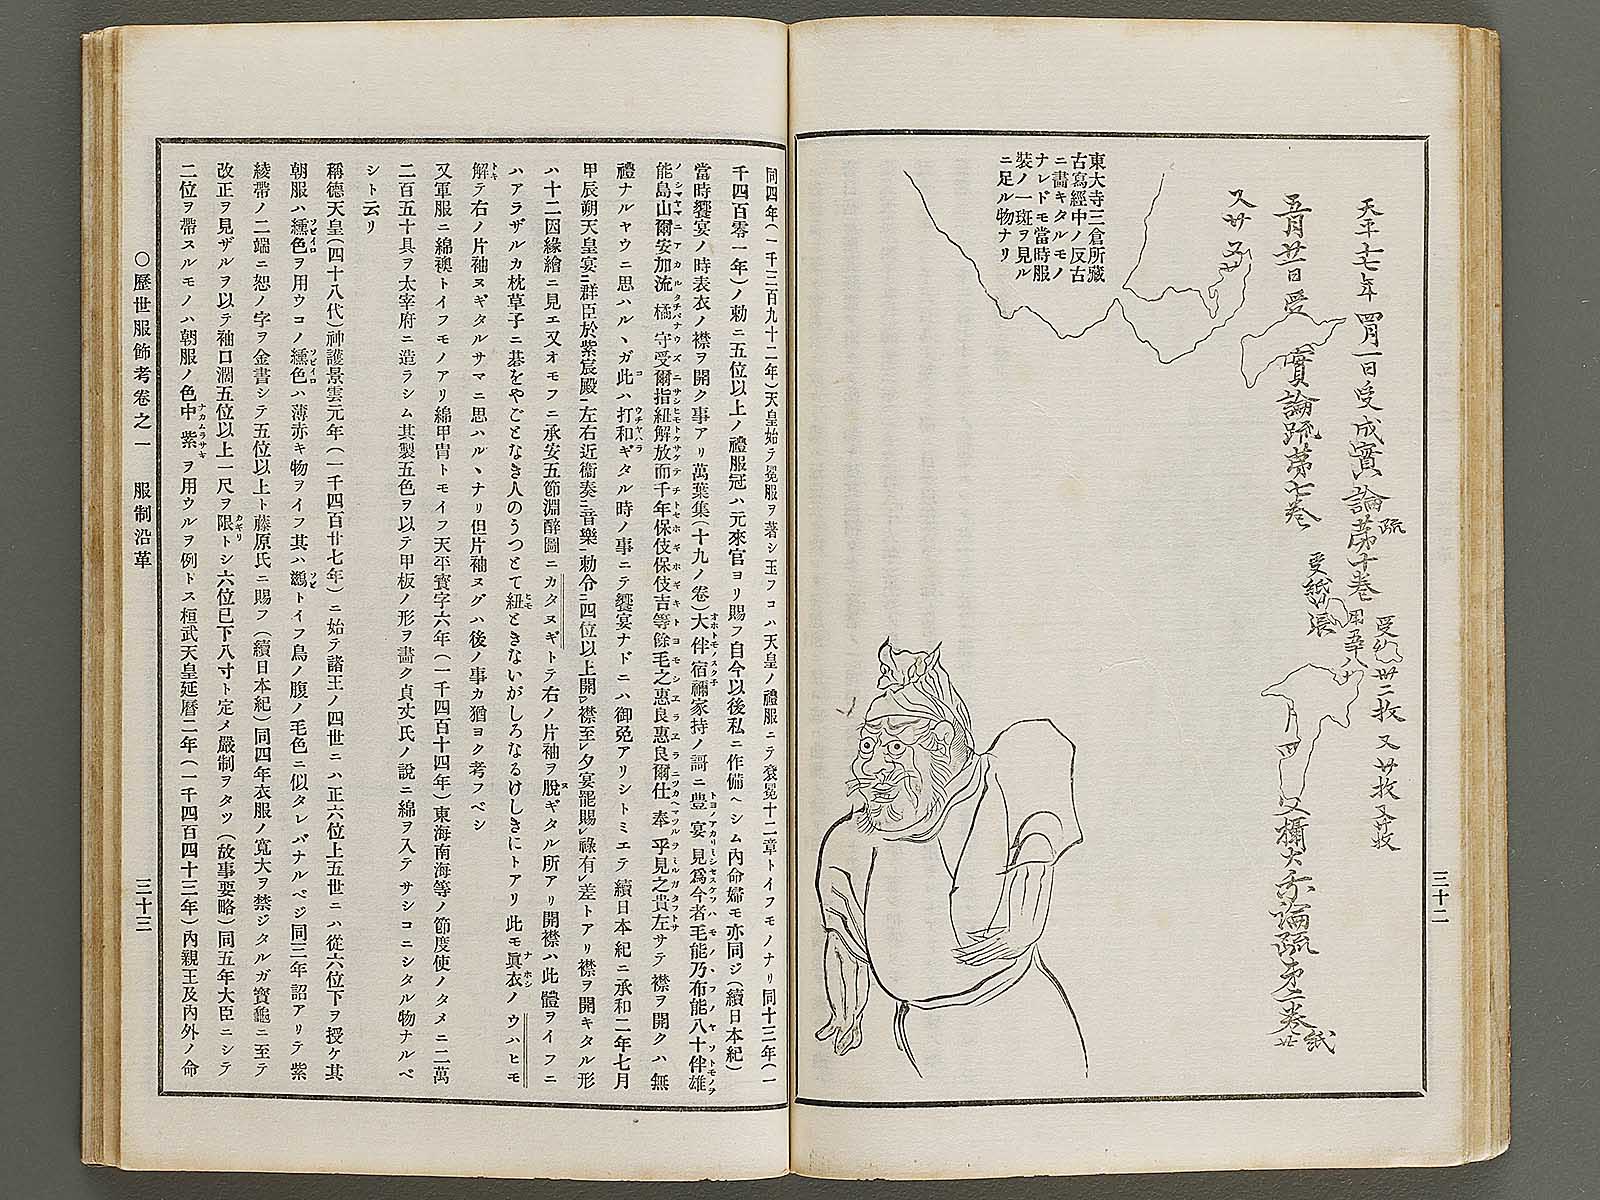 三十二
天平十七年四月一日受成實論疏第十卷
受紙卅二枚
五月廿一日受
實論疏第七卷
受紙
張
又廿
又攝大乘論疏第二卷
紙
東大寺三倉所藏
古寫經中ノ反古
ニ畵キタルモノ
ナレドモ當時服
裝ノ一斑ヲ見ル
ニ足ル物ナリ
同四年(一千三百九十二年)天皇始テ冕服ヲ著シ玉フコハ天皇ノ禮服ニテ袞冕十二章トイフモノナリ同十三年(一
千四百零一年)ノ勅ニ五位以上ノ禮服冠ハ元來官ヨリ賜フ自今以後私ニ作備ヘシム內命婦モ亦同ジ(續日本紀)
當時饗宴ノ時表衣ノ襟ヲ開ク事アリ萬葉集(十九ノ卷)大伴宿禰家持ノ謌ニ豊宴見爲今者毛能乃布能八十伴雄
能島山爾安加流橘守受爾指紐解放而千年保伎保伎吉等餘毛之惠良惠良爾仕奉乎見之貴左サテ襟ヲ開クハ無
禮ナルヤウニ思ハルヽガ此ハ打和ギタル時ノ事ニテ饗宴ナドニハ御免アリシトミエテ續日本紀ニ承和二年七月
甲辰朔天皇宴群臣於紫宸殿左右近衞奏音樂勅令四位以上開襟至夕宴罷賜祿有差トアリ襟ヲ開キタル形
ハ十二因緣繪ニ見エ又オモフニ承安五節淵醉圖ニカタヌギトテ右ノ片袖ヲ脫ギタル所アリ開襟ハ此體ヲイフニ
ハアラザルカ枕草子ニ碁をやごとなき人のうつとて紐ときないがしろなるけしきにトアリ此モ眞衣ノウハヒモ
解テ右ノ片袖ヌギタルサマニ思ハルヽナリ但片袖ヌグハ後ノ事カ猶ヨク考フベシ
又軍服ニ綿襖トイフモノアリ綿甲冑トモイフ天平寳字六年(一千四百十四年)東海南海等ノ節度使ノタメニ二萬
二百五十具ヲ太宰府ニ造ラシム其製五色ヲ以テ甲板ノ形ヲ畵ク貞丈氏ノ說ニ綿ヲ入テサシコニシタル物ナルベ
シト云リ
稱德天皇(四十八代)神護景雲元年(一千四百廿七年)ニ始テ諸王ノ四世ニハ正六位上五世ニハ從六位下ヲ授ケ其
朝服ハ纁色ヲ用ウコノ纁色ハ薄赤キ物ヲイフ其ハ鷀トイフ鳥ノ腹ノ毛色ニ似タレバナルベジ同三年詔アリテ紫
綾帶ノ二端ニ恕ノ字ヲ金書シテ五位以上ト藤原氏ニ賜フ(續日本紀)同四年衣服ノ寬大ヲ禁ジタルガ寳龜ニ至テ
改正ヲ見ザルヲ以テ袖口濶五位以上一尺ヲ限トシ六位已下八寸ト定メ嚴制ヲタツ(故事要略)同五年大臣ニシテ
二位ヲ帶スルモノハ朝服ノ色中紫ヲ用ウルヲ例トス桓武天皇延曆二年(一千四百四十三年)內親王及內外ノ命
○歷世服飾考卷之一 服制沿革
三十三